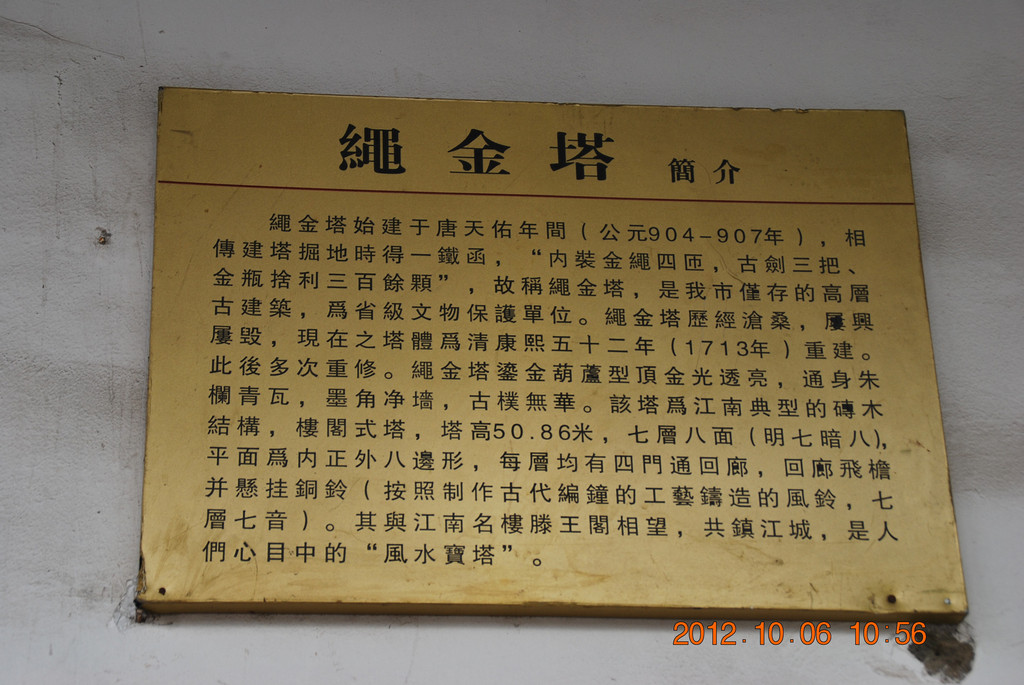 繩金塔 簡介
繩金塔始建于唐天佑年間（公元904-907年），相
傳建塔掘地時得一鐵函，“内裝金繩四匝，古劍三把、
金瓶捨利三百餘顆”，故稱繩金塔，是我市僅存的高層
古建築，爲省級文物保護單位。繩金塔歷經滄桑，屢興
屢毀，現在之塔體爲清康熙五十二年（1713年）重建。
此後多次重修。繩金塔鎏金葫蘆型頂金光透亮，通身朱
欄青瓦，墨角净墻，古樸無華。該塔爲江南典型的磚木
結構，樓閣式塔，塔高50.86米，七層八面（明七暗八），
平面爲内正外八邊形，每層均有四門通回廊，回廊飛檐
并懸挂銅鈴（按照制作古代編鐘的工藝鑄造的風鈴，七
層七音）。其與江南名樓滕王閣相望，共鎮江城，是人
們心目中的“風水寶塔”。
2012.10.06 10:56